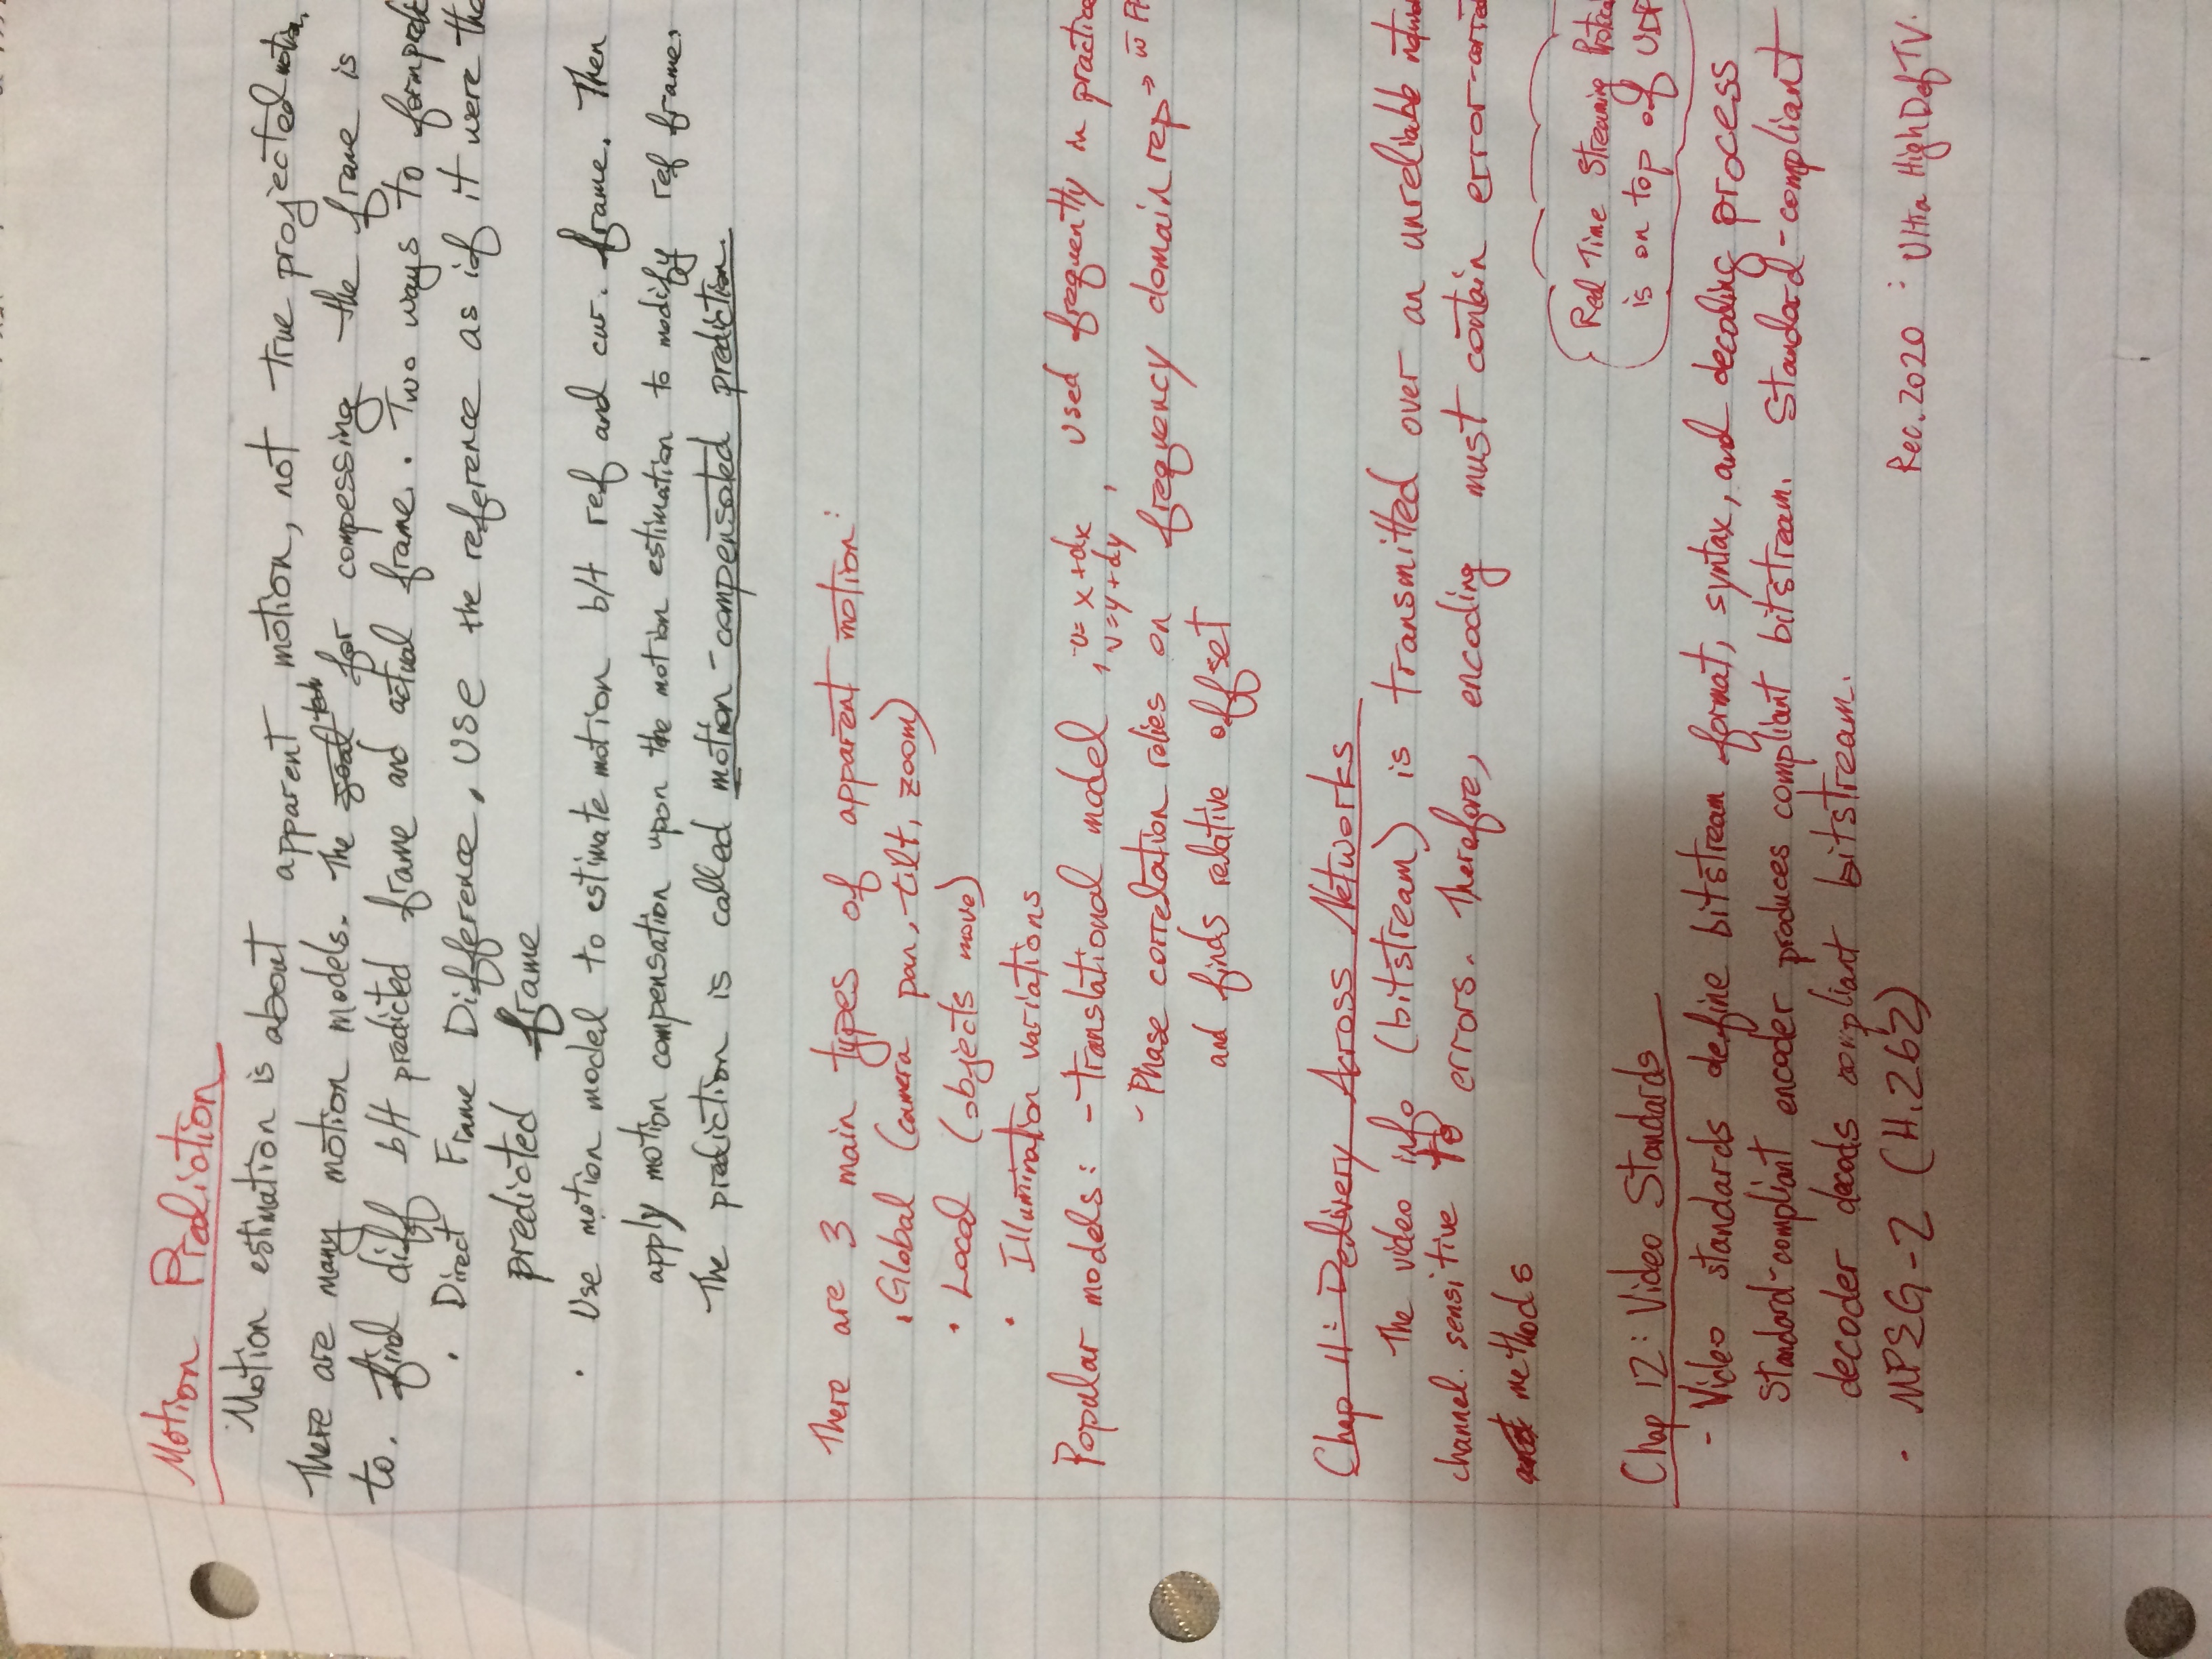 Motion Prediction
Motion estimation is about apparent motion, not true projected motion.
There are many motion models. The goal for compessing the frame is
to. find diff b/t predicted frame and actual frame. Two ways to form
• Direct Frame Difference, use the reference as if it were the
predicted frame
• Use motion model to estimate motion b/t ref and cur. frame. Then
apply motion compensation upon the motion estimation to modify ref frame.
The prediction is called motion-compensated prediction.
There are 3 main types of apparent motion:
• Global (camera pan, tilt, zoom)
• Local (objects move)
• Illumination variations
Popular models: - Translational model, u= x+dx, used frequently in practice
v=y+dy
- Phase correlation relies on frequency domain rep →
and finds relative offset
Chap 11: Delivery Across Networks
The video info (bitstream) is transmitted over an unreliable
channel. sensitive to errors. Therefore, encoding must contain
methods
Real Time Streaming
is on top of
Chap 12: Video Standards
- Video standards define bitstream format, syntax, and decoding process
Standard-compliant encoder produces compliant bitstream. Standard-compliant
decoder decods compliant bitstream.
• MPEG-2 (H.262)
Rec. 2020 : Ultra High Def TV.